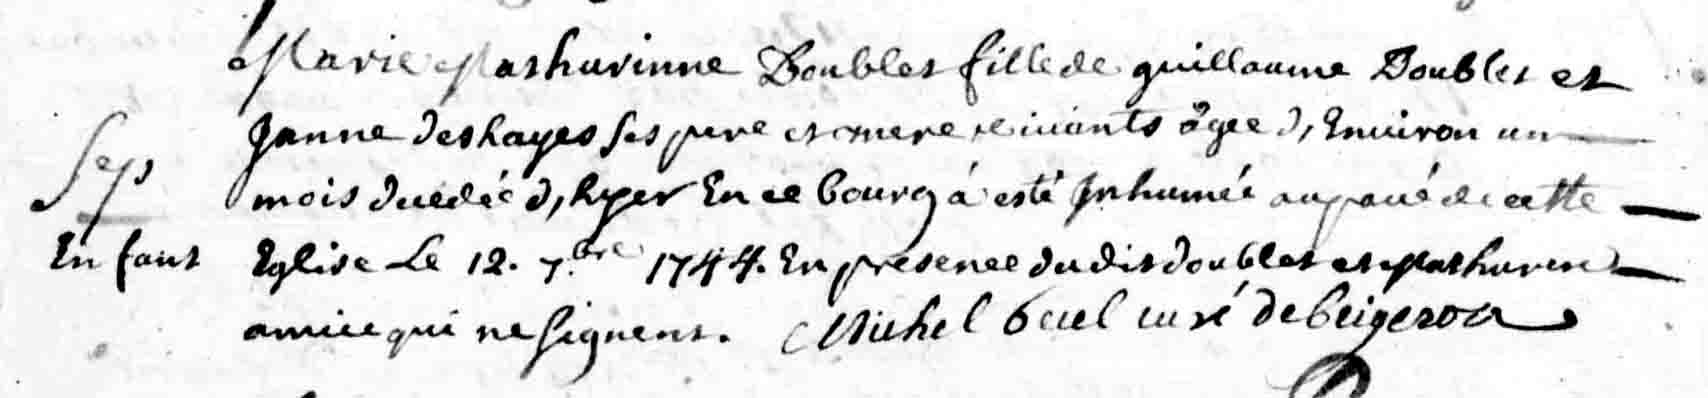 Marie Mathurinne Doublet fille de guillaume Doublet et
Sep Janne deshayes ses pere et mere vivants âgee d'Environ un
mois decedée d'hyer En ce bourg à esté Inhumée au pavé de cette
Enfant Eglise Le 12. 7.bre 1744. En presence dudit doublet et Mathurin
amice qui ne signent. Michel curé de